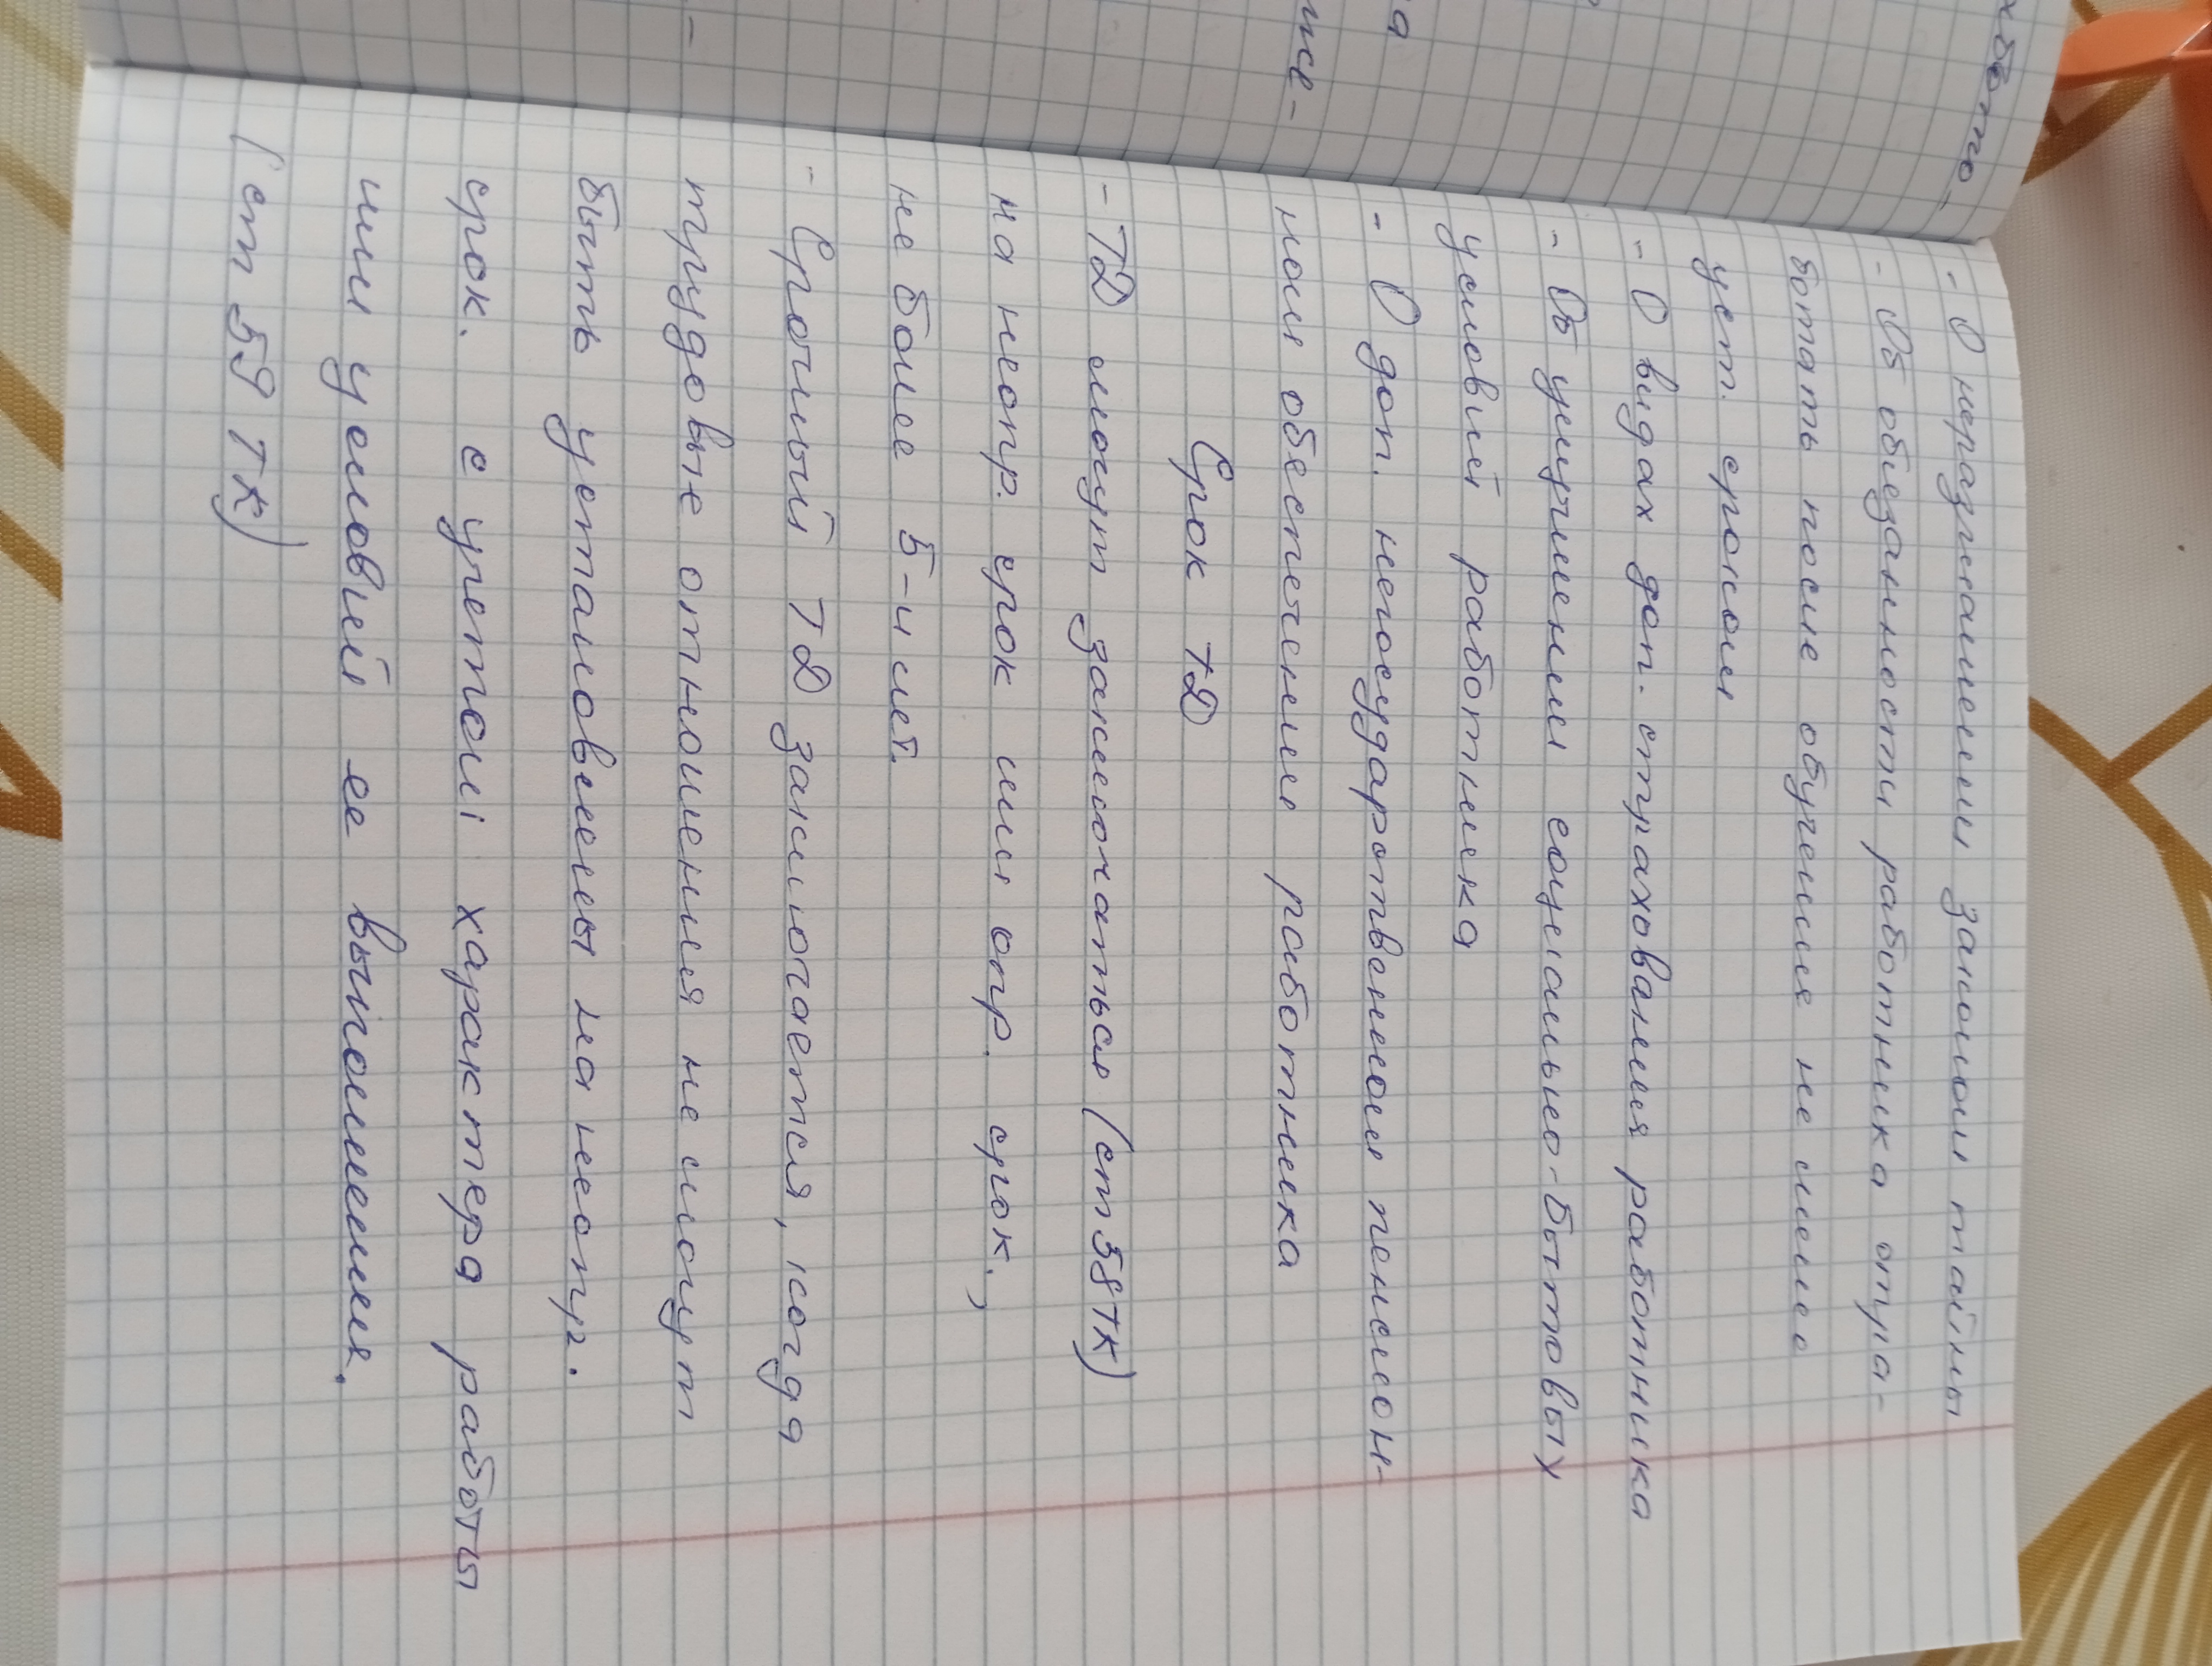 - О неразглашении законом тайны
- Об обязанности работника отра-
ботать после обучения не менее
уст. сроком
- О видах доп. страхования работника
- Об улучшении социально-бытовых
условий работника
- О доп. негосударственном пенсион-
ном обеспечении работника
Срок ТД
- ТД могут заключаться (ст 58 ТК)
на неопр. срок или опр. срок.,
не более 5-и лет.
- Срочный ТД заключается, когда
трудовые отношения не могут
быть установлены на неопр.
срок. с учетом характера работы
или условий ее выполнения.
(ст 59 ТК)